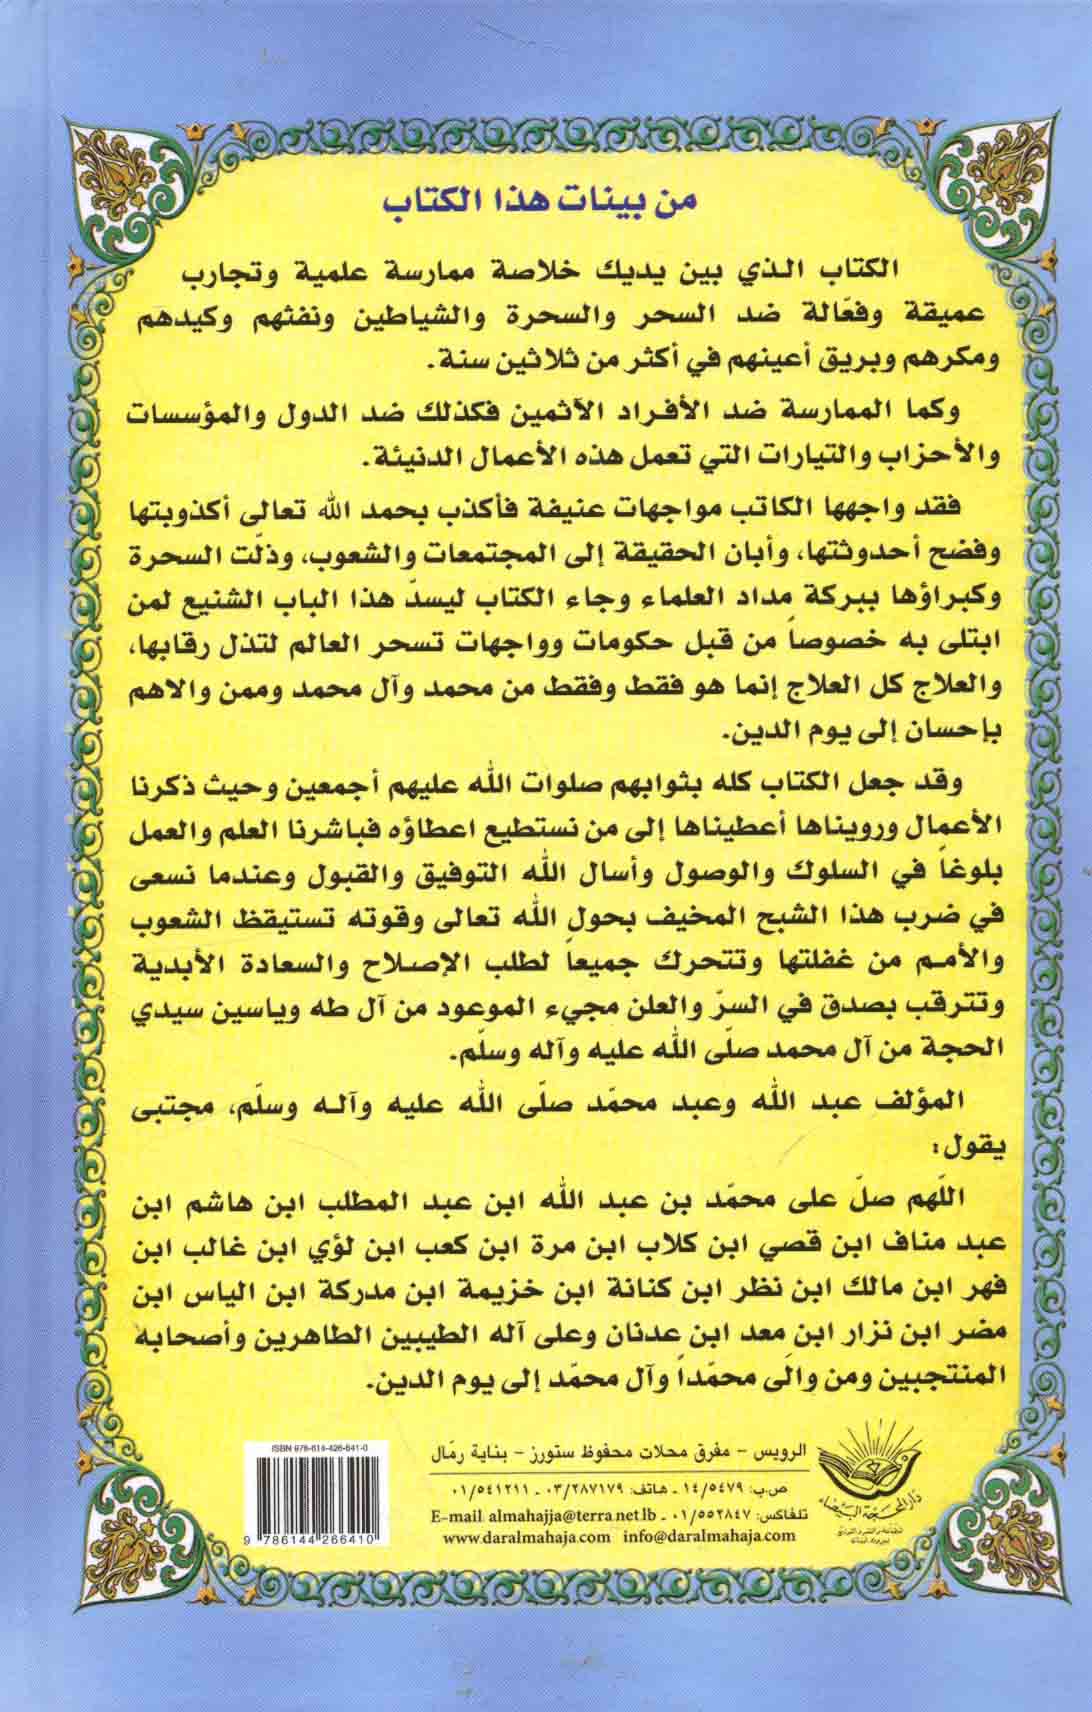 من بينات هذا الكتاب
الكتاب الذي بين يديك خلاصة ممارسة علمية وتجارب
عميقة وفعّالة ضد السحر والسحرة والشياطين ونفثهم وكيدهم
ومكرهم وبريق أعينهم في أكثر من ثلاثين سنة.
وكما الممارسة ضد الأفراد الآثمين فكذلك ضد الدول والمؤسسات
والأحزاب والتيارات التي تعمل هذه الأعمال الدنيئة.
فقد واجهها الكاتب مواجهات عنيفة فأكذب بحمد الله تعالى أكذوبتها
وفضح أحدوثتها، وأبان الحقيقة إلى المجتمعات والشعوب، وذلّت السحرة
وكبراؤها ببركة مداد العلماء وجاء الكتاب ليسدّ هذا الباب الشنيع لمن
ابتلى به خصوصاً من قبل حكومات وواجهات تسحر العالم لتذل رقابها،
والعلاج كل العلاج إنما هو فقط وفقط من محمد وآل محمد وممن والاهم
بإحسان إلى يوم الدين.
وقد جعل الكتاب كله بثوابهم صلوات الله عليهم أجمعين وحيث ذكرنا
الأعمال ورويناها أعطيناها إلى من نستطيع اعطاؤه فباشرنا العلم والعمل
بلوغاً في السلوك والوصول وأسال الله التوفيق والقبول وعندما نسعى
في ضرب هذا الشبح المخيف بحول الله تعالى وقوته تستيقظ الشعوب
والأمم من غفلتها وتتحرك جميعاً لطلب الإصلاح والسعادة الأبدية
وتترقب بصدق في السرّ والعلن مجيء الموعود من آل طه وياسين سيدي
الحجة من آل محمد صلّى الله عليه وآله وسلّم.
المؤلف عبد الله وعبد محمّد صلّى الله عليه وآله وسلّم، مجتبى
يقول:
اللّهم صلّ على محمّد بن عبد الله ابن عبد المطلب ابن هاشم ابن
عبد مناف ابن قصي ابن كلاب ابن مرة ابن كعب ابن لؤي ابن غالب ابن
فهر ابن مالك ابن نظر ابن كنانة ابن خزيمة ابن مدركة ابن الياس ابن
مضر ابن نزار ابن معد ابن عدنان وعلى آله الطيبين الطاهرين وأصحابه
المنتجبين ومن والَى محمّداً وآل محمّد إلى يوم الدين.
الرويس - مفرق محلات محفوظ ستورز - بناية رمّال
ص.ب: ١٤/٥٤٧٩ - هاتف: ٠٣/٢٨٧١٧٩ - ٠١/٥٤١٢١١
تلفاكس: ٠١/٥٥٢٨٤٧ - E-mail: almahajja@terra.net.lb
www.daralmahaja.com info@daralmahaja.com
دار المحجة البيضاء
ISBN 978-614-426-641-0
9 786144 266410